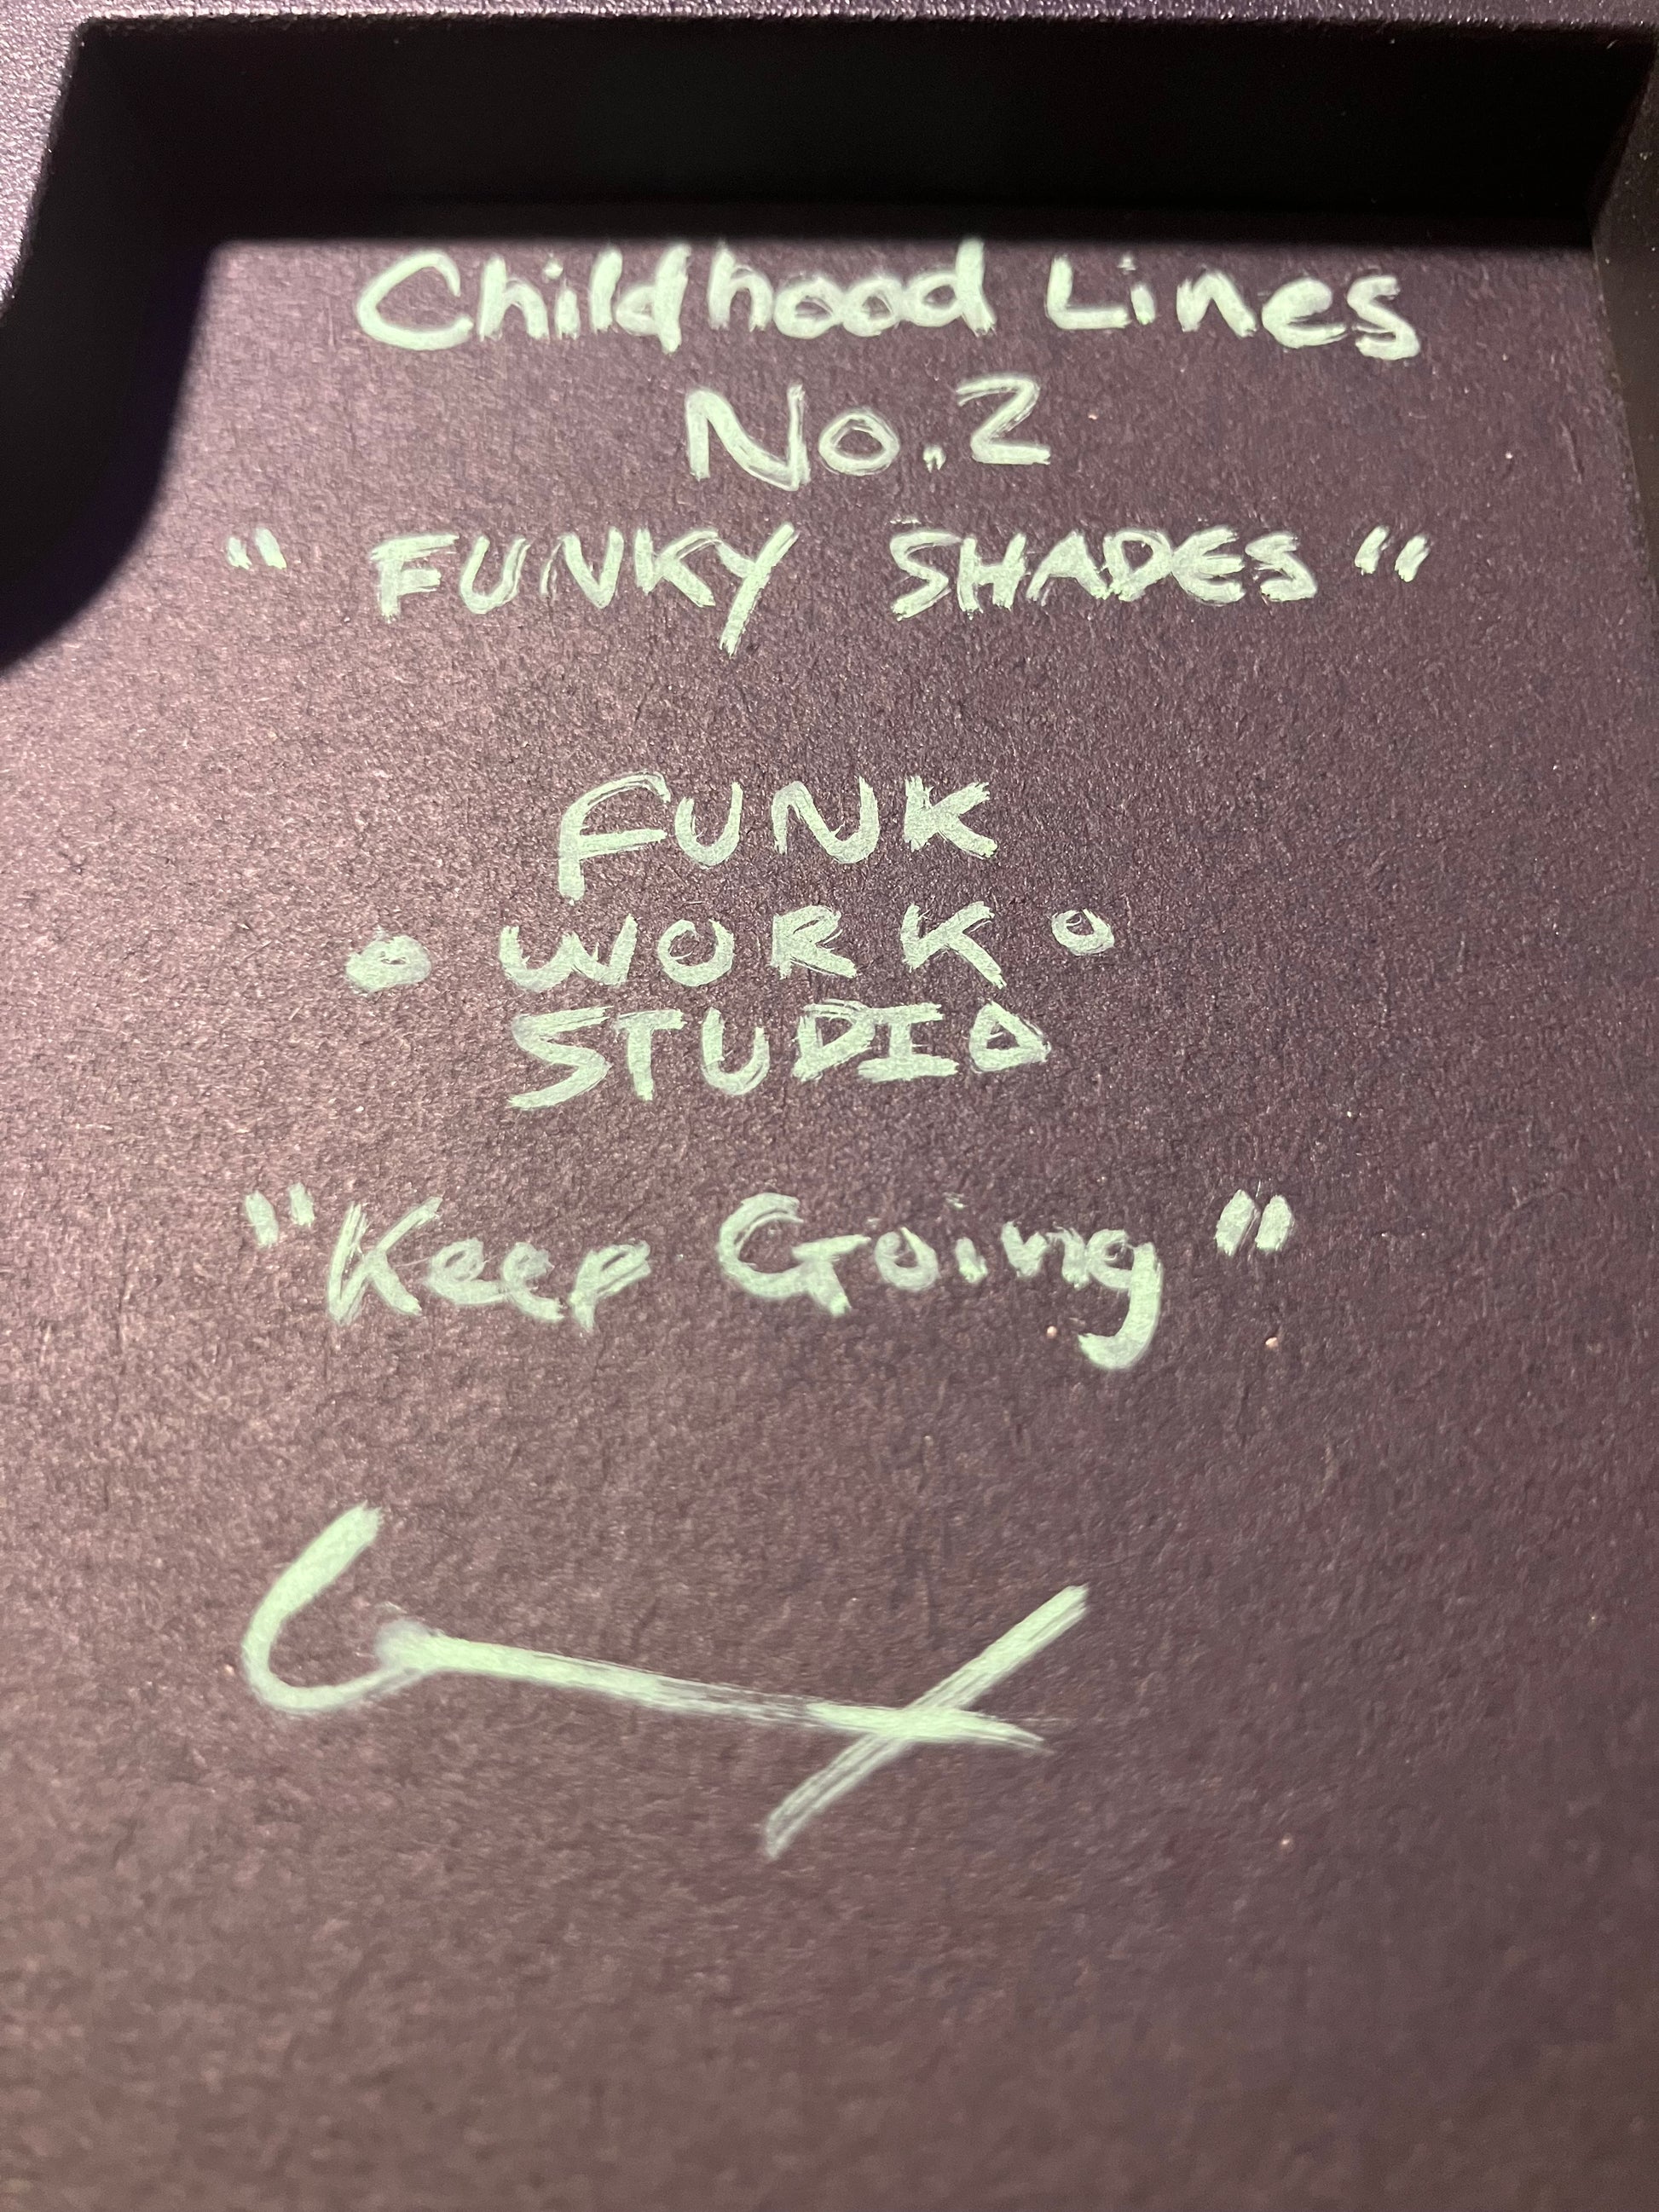 Childhood Lines
No.2
"FUNKY SHADES"
FUNK
• WORK •
STUDIO
"Keep Going"